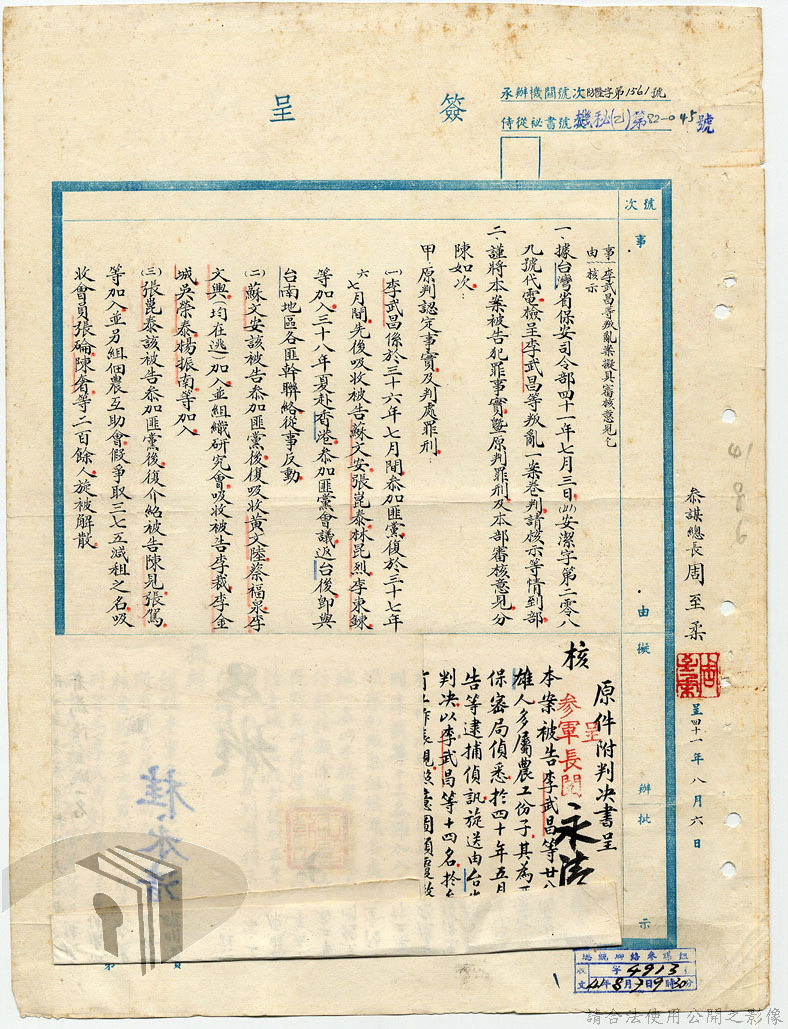 簽呈
承辦機關號次防隆字第1561號
侍從祕書號 機秘(乙)第82-045號
號次
事由擬辦批示
參謀總長周至柔
呈四十一年八月六日
事由 李武昌等叛亂案擬具審核意見乞核示
一、據台灣省保安司令部四十一年七月三日(41)安潔字第二零八
九號代電檢呈李武昌等叛亂一案卷判請核示等情到部
二、謹將本案被告犯罪事實暨原判罪刑及本部審核意見分
陳如次:
甲、原判認定事實及判處罪刑:
(一)李武昌係於三十六年七月間參加匪黨復於三十七年
六七月間先後吸收被告蘇文安張崑泰林昆烈李東鍊
等加入三十八年夏赴香港參加匪黨會議返台後卽與
台南地區各匪幹聯絡從事反動
(二)蘇文安該被告參加匪黨後復吸收黃文陸蔡福泉李
文興(均在逃)加入並組織研究會吸收被告李裁李金
城吳榮泰楊振南等加入
(三)張崑泰該被告參加匪黨後復介紹被告陳見張篤
等加入並另組佃農互助會假爭取三七五減租之名吸
收會員張碖陳奢等二百餘人旋被解散
原件附判決書呈
核
呈
參軍長閱
本案被告李武昌等廿八
雄人多屬農工份子其為
保密局偵悉於四十年五月
告等逮捕偵訊旋送由台
判決以李武昌等十四名於
4913
41年8月9日9時30分
請合法使用公開之影像